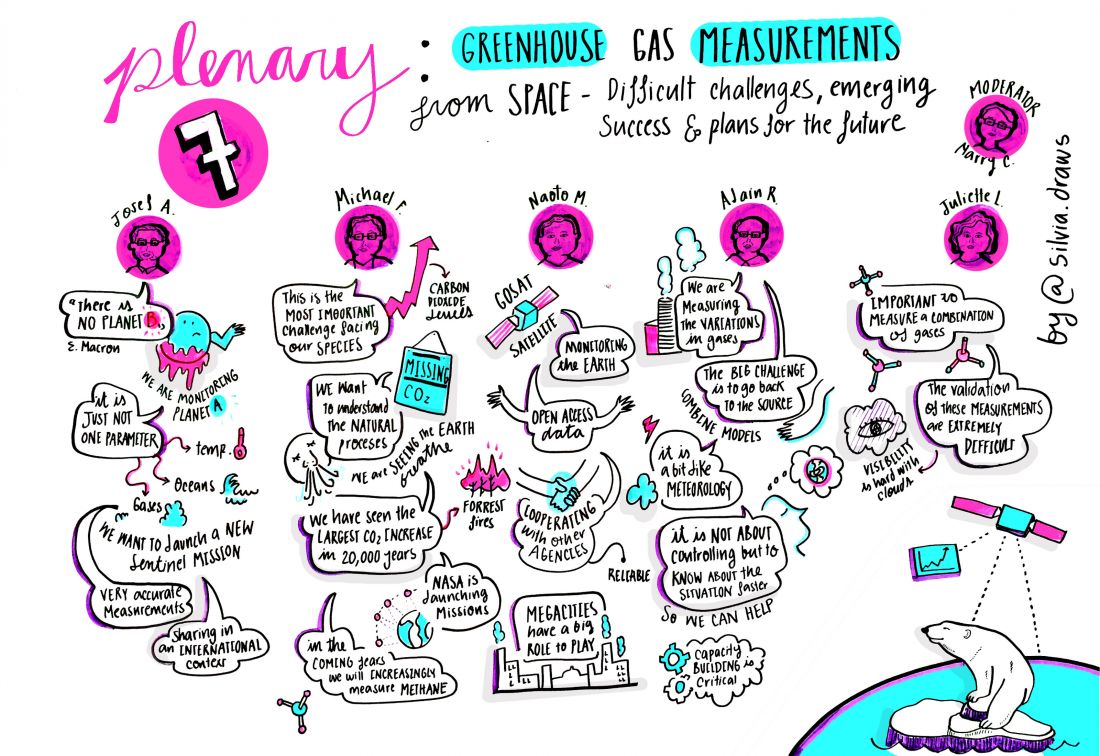 plenary :
7
GREENHOUSE GAS MEASUREMENTS
from SPACE - Difficult challenges, emerging
Success & plans for the future
MODERATOR
Marry C.
by @silvia.draws
Josef A.
"There is
NO PLANET B"
E. Macron
WE ARE MONITORING
PLANET A
it is
JUST NOT
ONE PARAMETER
temp.
Oceans
Gases
WE WANT to launch a NEW
Sentinel MISSION
VERY accurate
Measurements
Sharing in
an INTERNATIONAL
context
Michael F.
This is the
MOST IMPORTANT
Challenge facing
our SPECIES
CARBON
DIOXIDE
levels
MISSING
CO2
WE Want
to understand
the NATURAL
proceses
WE are SEEING the EARTH
breathe
We have seen the
LARGEST CO2 INCREASE
in 20,000 years
FORREST
fires
NASA is
launching
Missions
in the
COMING years
we will INCREASINGLY
measure METHANE
Naoto M.
GOSAT
SATELLITE
MONITORING
the EARTH
OPEN ACCESS
data
COOPERATING
with other
AGENCIES
RELIABLE
MEGACITIES
have a big
ROLE to PLAY
Alain R.
We are
Measuring
the VARIATIONS
in gases
THE BIG CHALLENGE
is to go back
to the SOURCE
COMBINE MODELS
it is
a bit like
METEOROLOGY
it is NOT ABOUT
controlling but to
KNOW ABOUT the
SITUATION faster
SO WE CAN HELP
Capacity
BUILDING is
Critical
Juliette L.
IMPORTANT to
MEASURE a COMBINATION
of gases
The validation
of these MEASUREMENTS
are EXTREMELY
DIFFICULT
VISIBILITY
is hard with
clouds